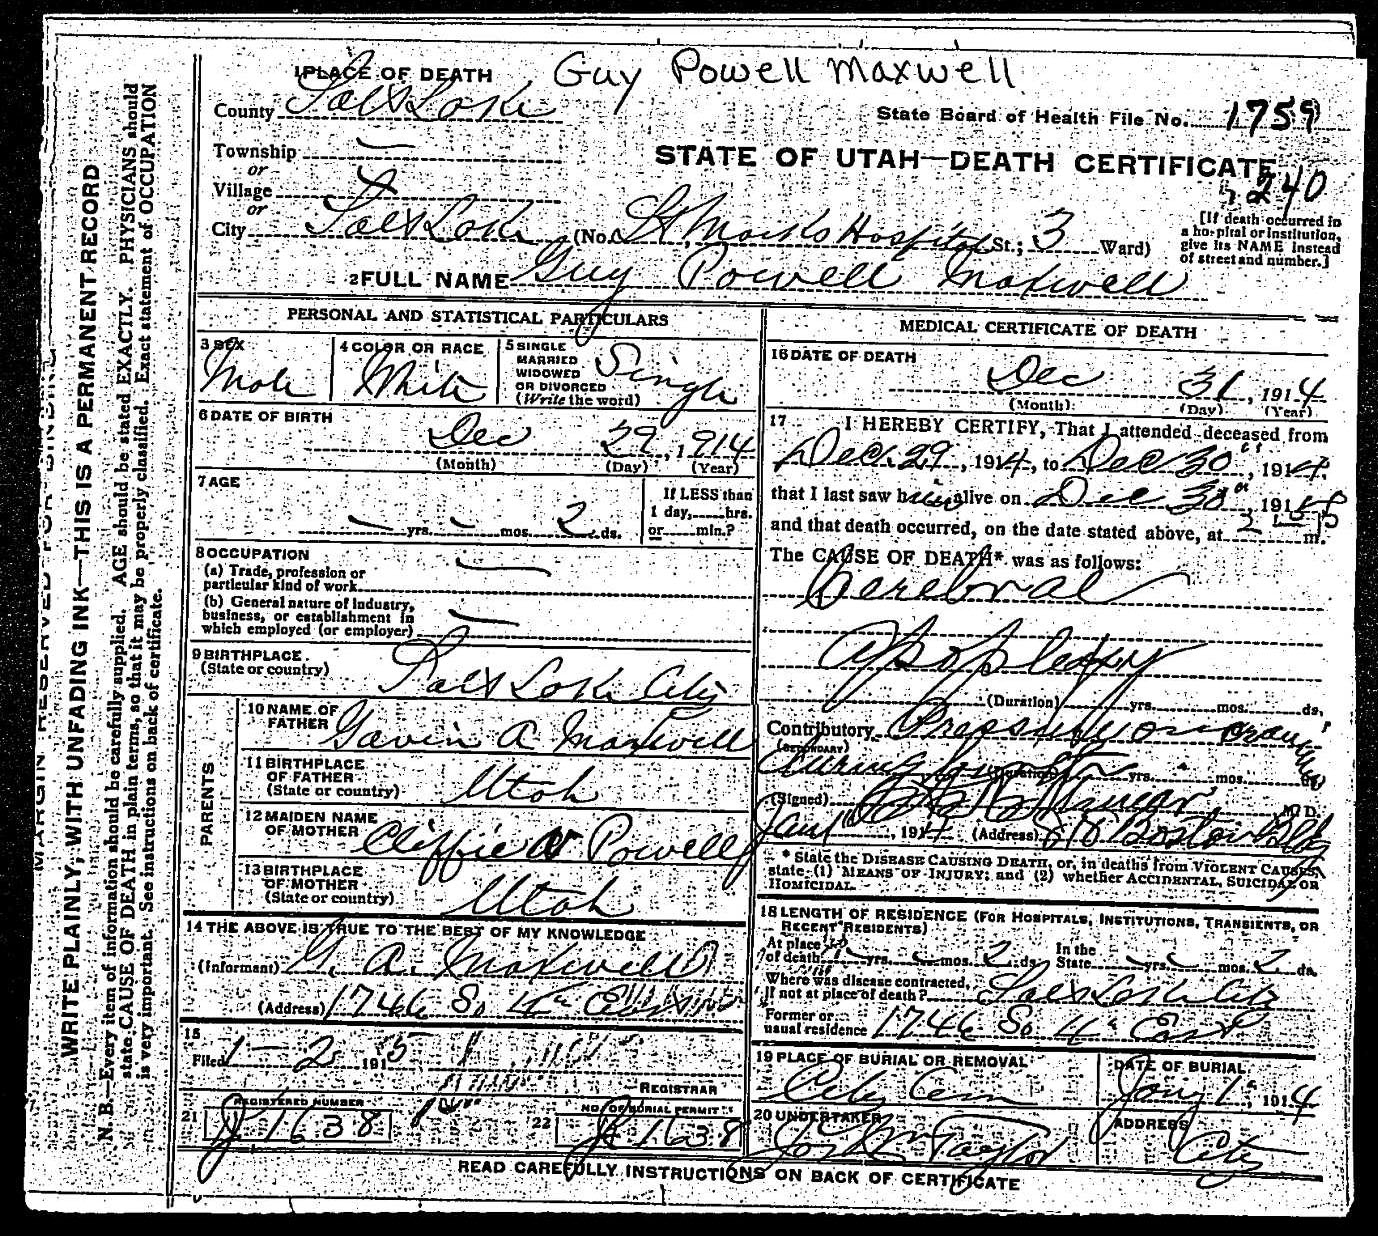 1 PLACE OF DEATH Guy Powell Maxwell
County Salt Lake
State Board of Health File No. 1759
Township —
STATE OF UTAH—DEATH CERTIFICATE
240
or
Village
or
City Salt Lake (No. St Marks Hospital St.; 3 Ward)
[If death occurred in
a hospital or institution,
give its NAME instead
of street and number.]
2 FULL NAME Guy Powell Maxwell
PERSONAL AND STATISTICAL PARTICULARS
3 SEX
Male
4 COLOR OR RACE
White
5 SINGLE
MARRIED
WIDOWED
OR DIVORCED
(Write the word)
Single
6 DATE OF BIRTH
Dec 29, 1914
(Month) (Day) (Year)
7 AGE
— yrs. — mos. 2 ds.
If LESS than
1 day, hrs.
or min.?
8 OCCUPATION
(a) Trade, profession or
particular kind of work —
(b) General nature of industry,
business, or establishment in
which employed (or employer) —
9 BIRTHPLACE
(State or country) Salt Lake City
PARENTS
10 NAME OF
FATHER Gavin A Maxwell
11 BIRTHPLACE
OF FATHER
(State or country) Utah
12 MAIDEN NAME
OF MOTHER Cliffie Powell
13 BIRTHPLACE
OF MOTHER
(State or country) Utah
14 THE ABOVE IS TRUE TO THE BEST OF MY KNOWLEDGE
(Informant) G. A. Maxwell
(Address) 1746 So 4th East
15
Filed 1-2 1915
REGISTRAR
21 REGISTERED NUMBER
J 1638
22 NO. OF BURIAL PERMIT
J 1638
MEDICAL CERTIFICATE OF DEATH
16 DATE OF DEATH
Dec 31, 1914
(Month) (Day) (Year)
17 I HEREBY CERTIFY, That I attended deceased from
Dec. 29, 1914, to Dec 30, 1914,
that I last saw him alive on Dec 30, 191
and that death occurred, on the date stated above, at m.
The CAUSE OF DEATH* was as follows:
Cerebral
Apoplexy
(Duration) yrs. mos. ds.
Contributory Pressure on
(SECONDARY)
during yrs. mos. ds.
(Signed) M. D.
Jan 1, 1914 (Address) 618 Boston Bldg
* State the DISEASE CAUSING DEATH, or, in deaths from VIOLENT CAUSES,
state (1) MEANS OF INJURY; and (2) whether ACCIDENTAL, SUICIDAL OR
HOMICIDAL.
18 LENGTH OF RESIDENCE (FOR HOSPITALS, INSTITUTIONS, TRANSIENTS, OR
RECENT RESIDENTS)
At place
of death yrs. mos. 2 ds.
In the
State yrs. mos. 2 ds.
Where was disease contracted,
if not at place of death? Salt Lake City
Former or
usual residence 1746 So 4th East
19 PLACE OF BURIAL OR REMOVAL
City Cem
DATE OF BURIAL
Jany 1, 1914
20 UNDERTAKER
Jos Wm Taylor
ADDRESS
City
READ CAREFULLY INSTRUCTIONS ON BACK OF CERTIFICATE
MARGIN RESERVED FOR BINDING
WRITE PLAINLY, WITH UNFADING INK—THIS IS A PERMANENT RECORD
N. B.—Every item of information should be carefully supplied. AGE should be stated EXACTLY. PHYSICIANS should
state CAUSE OF DEATH in plain terms, so that it may be properly classified. Exact statement of OCCUPATION
is very important. See instructions on back of certificate.